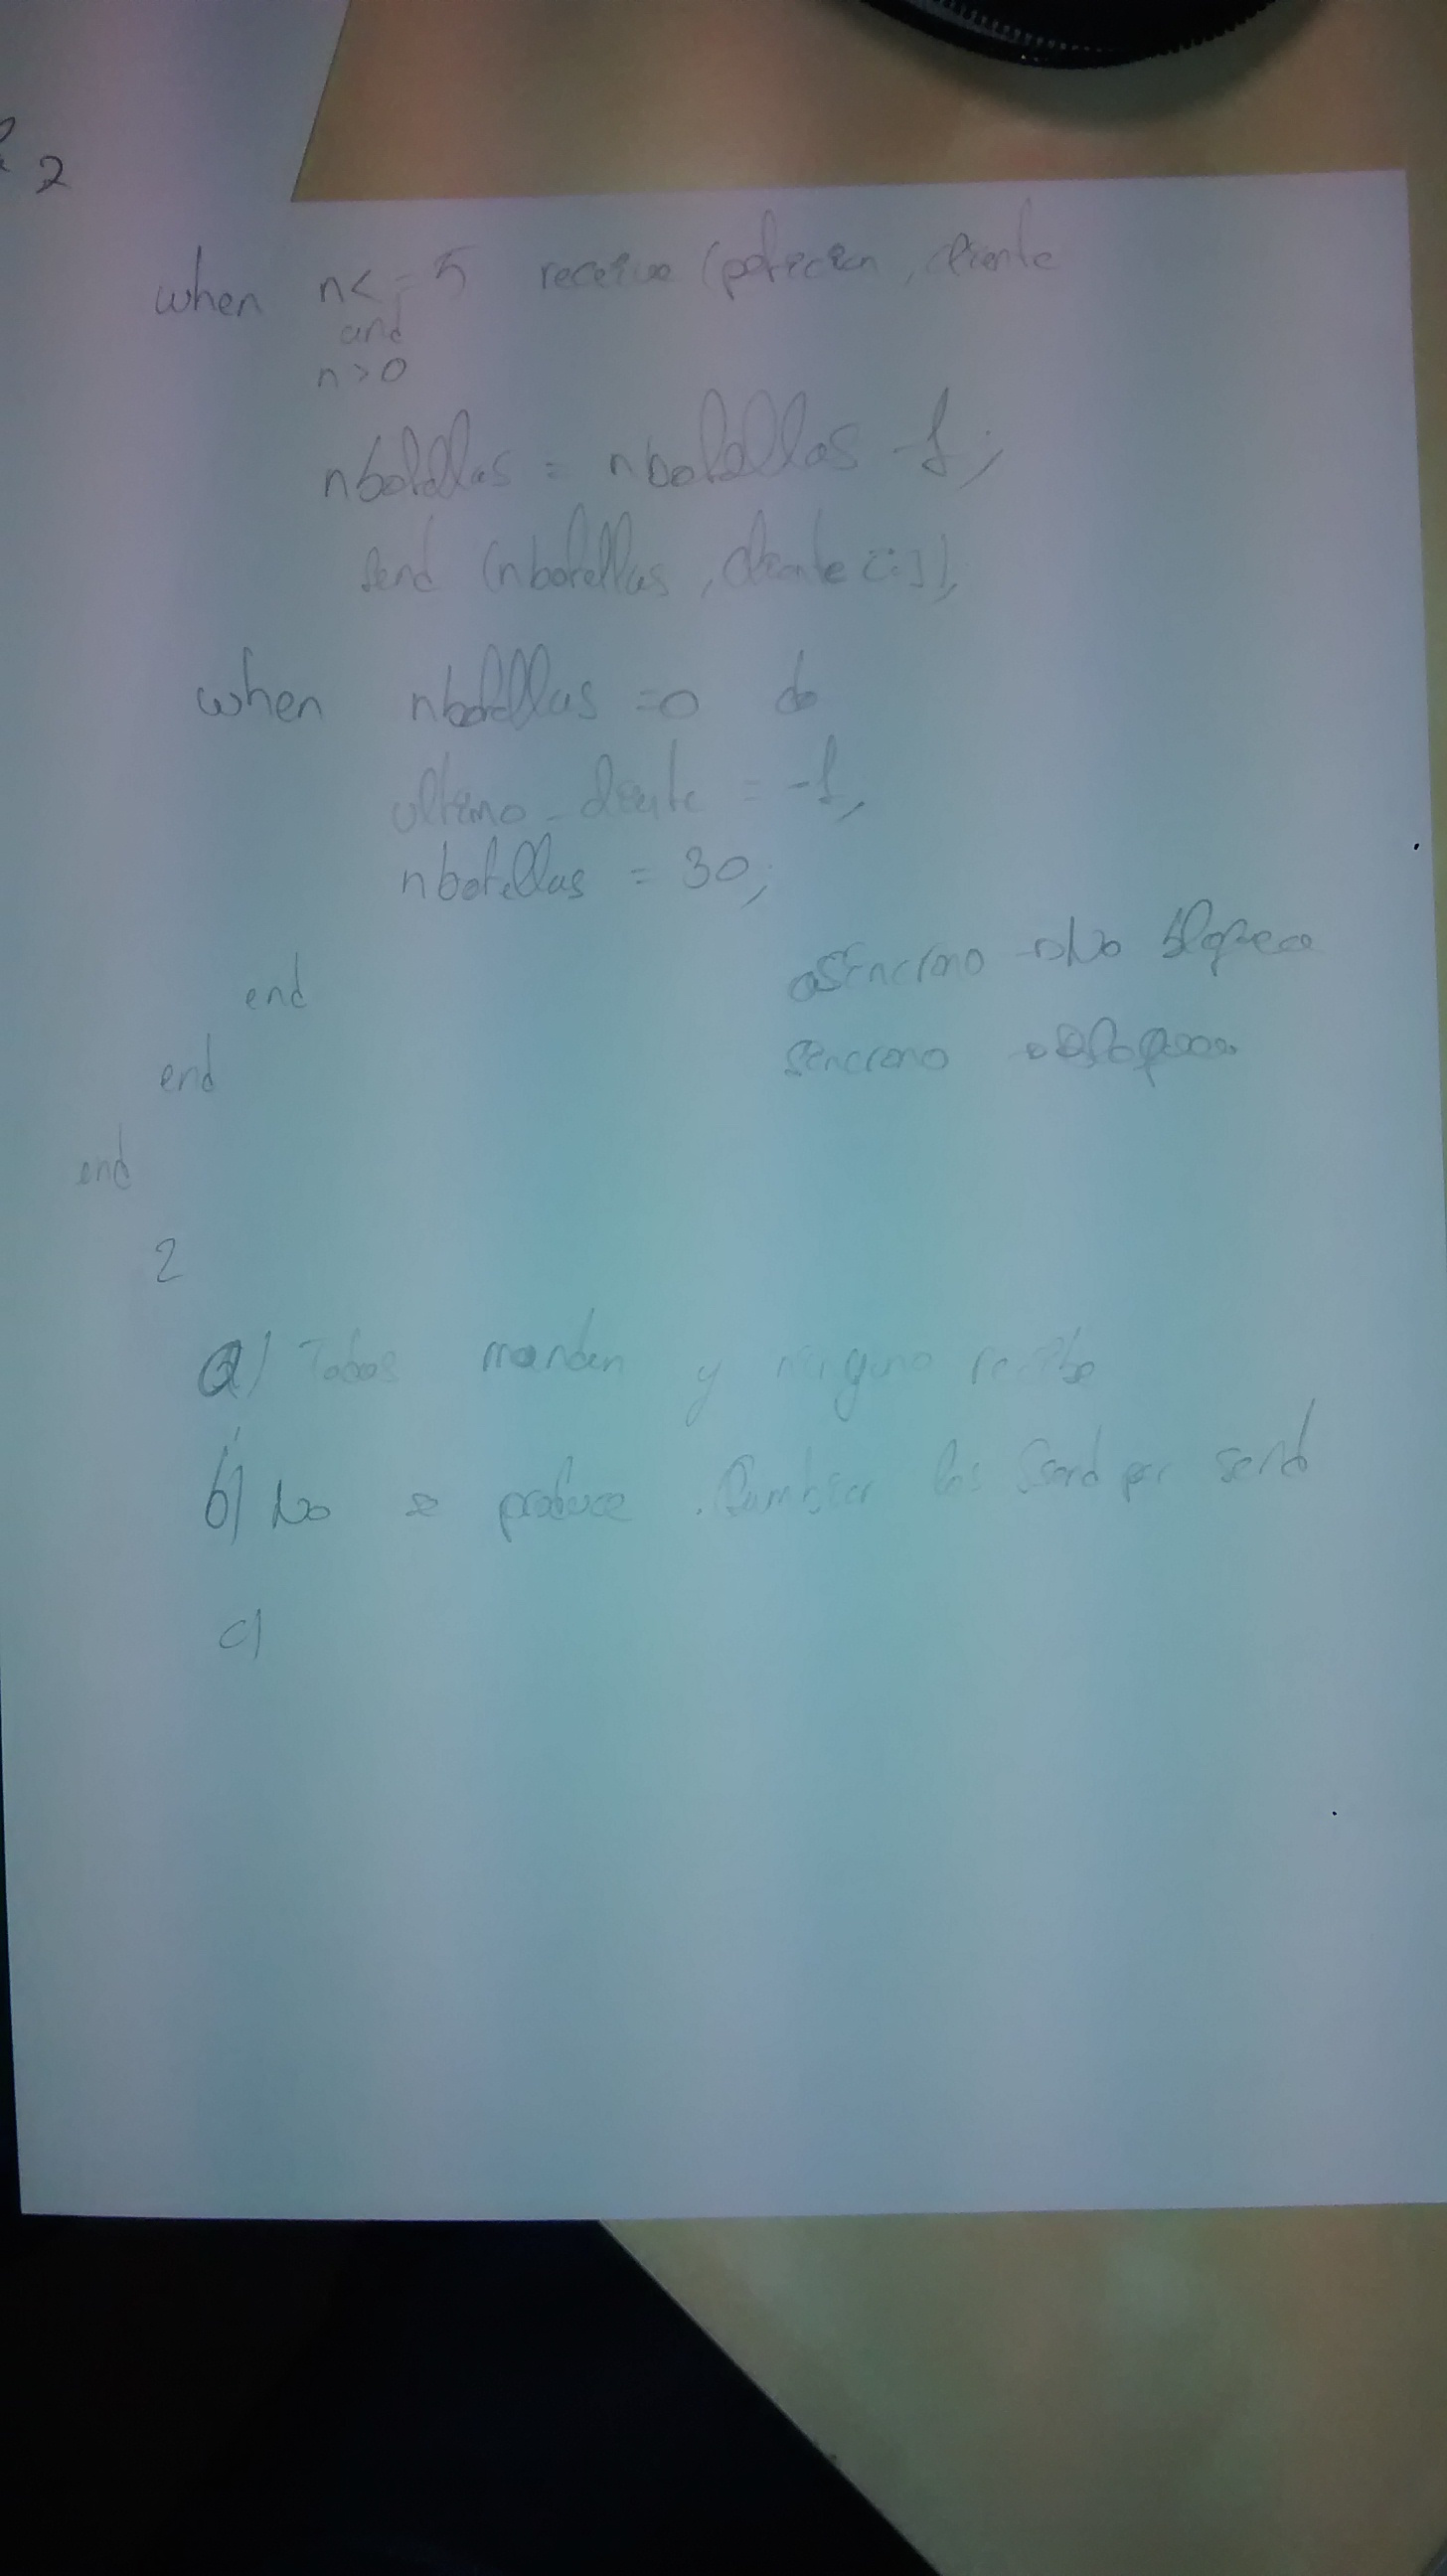 2
when n<=5 receive (peticion, cliente
and
n>0
nbotellas = nbotellas -1;
send (nbotellas, cliente[i]);
when nbotellas =0 do
ultimo_cliente = -1;
nbotellas = 30;
asincrono → No bloquea
end
sincrono →
end
end
2
a) Todos manden y ninguno recibe
b) No se produce. Cambiar los Ssend por send
c)